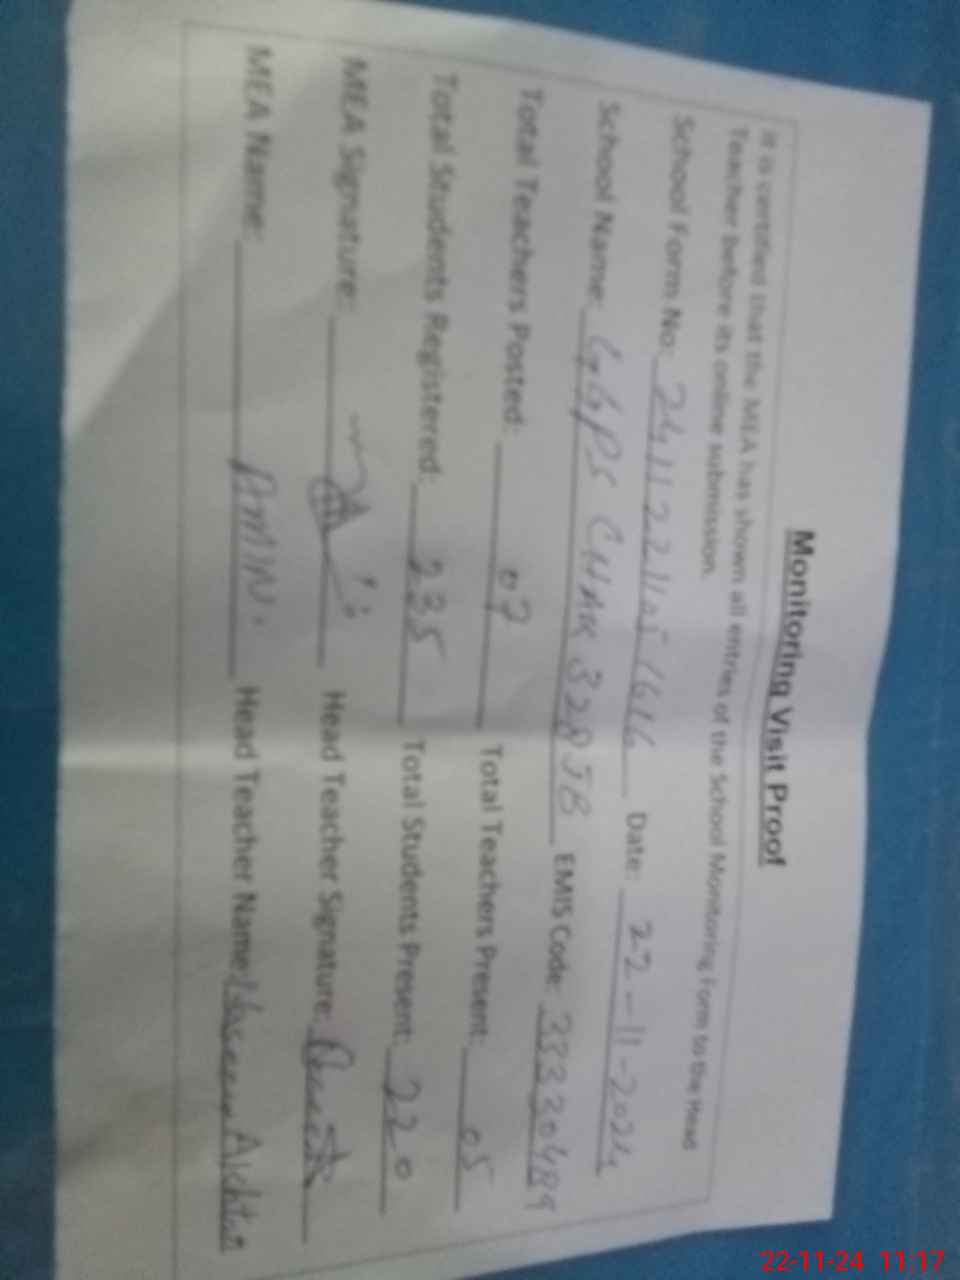 Monitoring Visit Proof
It is certified that the MEA has shown all entries of the School Monitoring Form to the Head
Teacher before its online submission.
School Form No: Date: 22-11-2024
School Name: GGPS CHAK 328 JB EMIS Code: 33320489
Total Teachers Posted: 07 Total Teachers Present: 05
Total Students Registered: 235 Total Students Present: 220
MEA Signature: Head Teacher Signature:
MEA Name: AMIN. Head Teacher Name: Akhtar
22-11-24 11:17